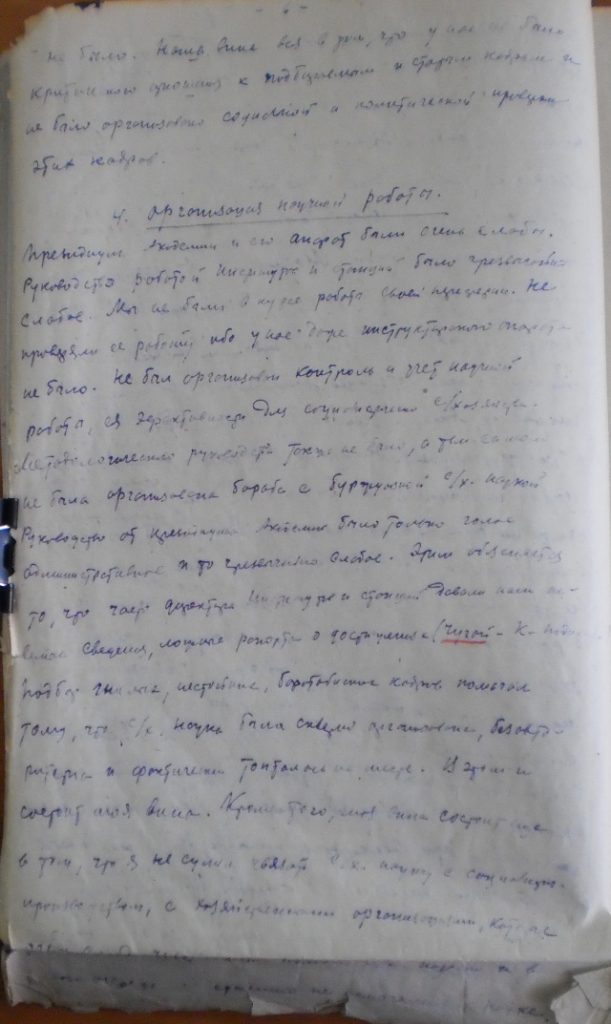 - 6 -
не было. Наша вина вся в том, что у нас не было
критического отношения к подбираемым и старым кадрам и
не было организовано социальной и политической проверки
этих кадров.
4. Организация научной работы.
Президиум Академии и его аппарат были очень слабы.
Руководство работой Институтов и станций было чрезвычайно
слабое. Мы не были в курсе работы своей периферии. Не
проверяли ее работы ибо у нас даже инструкторского аппарата
не было. Не был организован контроль и учет научной
работы, ея эффективности для социалистического с/хозяйства.
Методологического руководства также не было, а тем самым
не была организована борьба с буржуазной с/х. наукой
Руководство от президиума Академии было только голое
административное и то чрезвычайно слабое. Этим объясняется
то, что часто директора Институтов и станций давали нам
сведения, ложные рапорты о достижениях (Чигой - К.
Подбор гнилых, нестойких, боротьбистских кадров помогал
тому, что с/х. наука была скверно организована,
и фактически топталась на месте. В этом и
состоит моя вина. Кроме того, моя вина состоит еще
в том, что я не сумел связать с.х. науку с социалистич.
производством, с хозяйственными организациями, которые